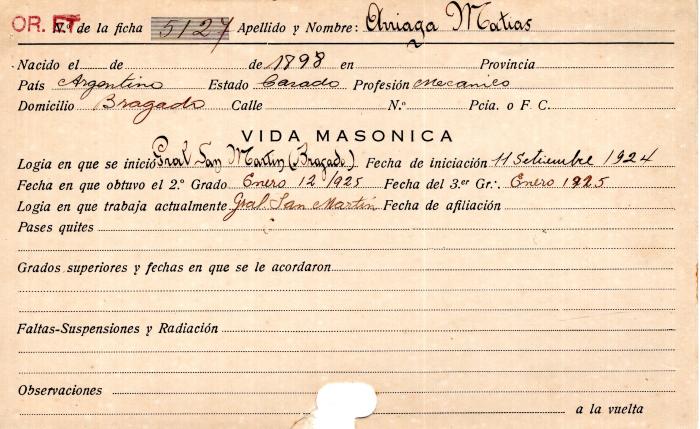 OR. ET N.º de la ficha 5127 Apellido y Nombre: Arriaga Matias
Nacido el de de 1898 en Provincia
País Argentino Estado Casado Profesión Mecanico
Domicilio Bragado Calle N.º Pcia. o F. C.
VIDA MASONICA
Logia en que se inició Gral San Martin (Bragado) Fecha de iniciación 11 Setiembre 1924
Fecha en que obtuvo el 2.º Grado Enero 12 1925 Fecha del 3.er Gr.·. Enero 1925
Logia en que trabaja actualmente Gral San Martin Fecha de afiliación
Pases quites
Grados superiores y fechas en que se le acordaron
Faltas-Suspensiones y Radiación
Observaciones
a la vuelta